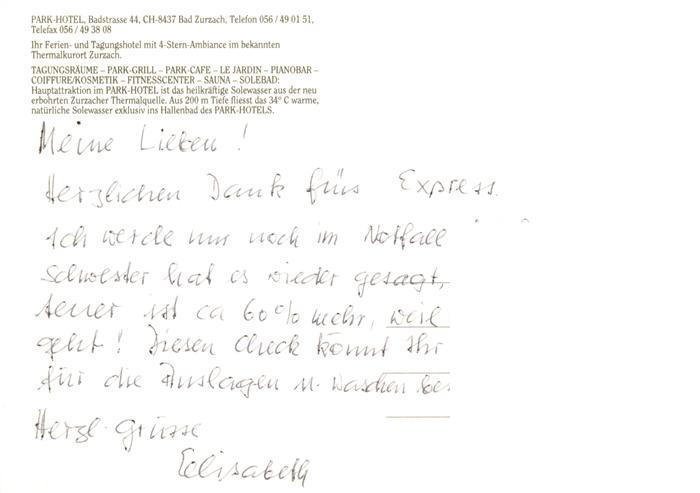 PARK-HOTEL, Badstrasse 44, CH-8437 Bad Zurzach, Telefon 056 / 49 01 51,
Telefax 056 / 49 38 08
Ihr Ferien- und Tagungshotel mit 4-Stern-Ambiance im bekannten
Thermalkurort Zurzach.
TAGUNGSRÄUME – PARK-GRILL – PARK-CAFE – LE JARDIN – PIANOBAR –
COIFFURE/KOSMETIK – FITNESSCENTER – SAUNA – SOLEBAD:
Hauptattraktion im PARK-HOTEL ist das heilkräftige Solewasser aus der neu
erbohrten Zurzacher Thermalquelle. Aus 200 m Tiefe fliesst das 34° C warme,
natürliche Solewasser exklusiv ins Hallenbad des PARK-HOTELS.
Meine Lieben!
Herzlichen Dank fürs Express.
Ich werde nur noch im Notfall
Schwester hat es wieder gesagt,
teuer ist ca 60% mehr, weil
geht! Diesen Check könnt Ihr
für die Auslagen u. Waschen
Herzl. Grüsse
Elisabeth